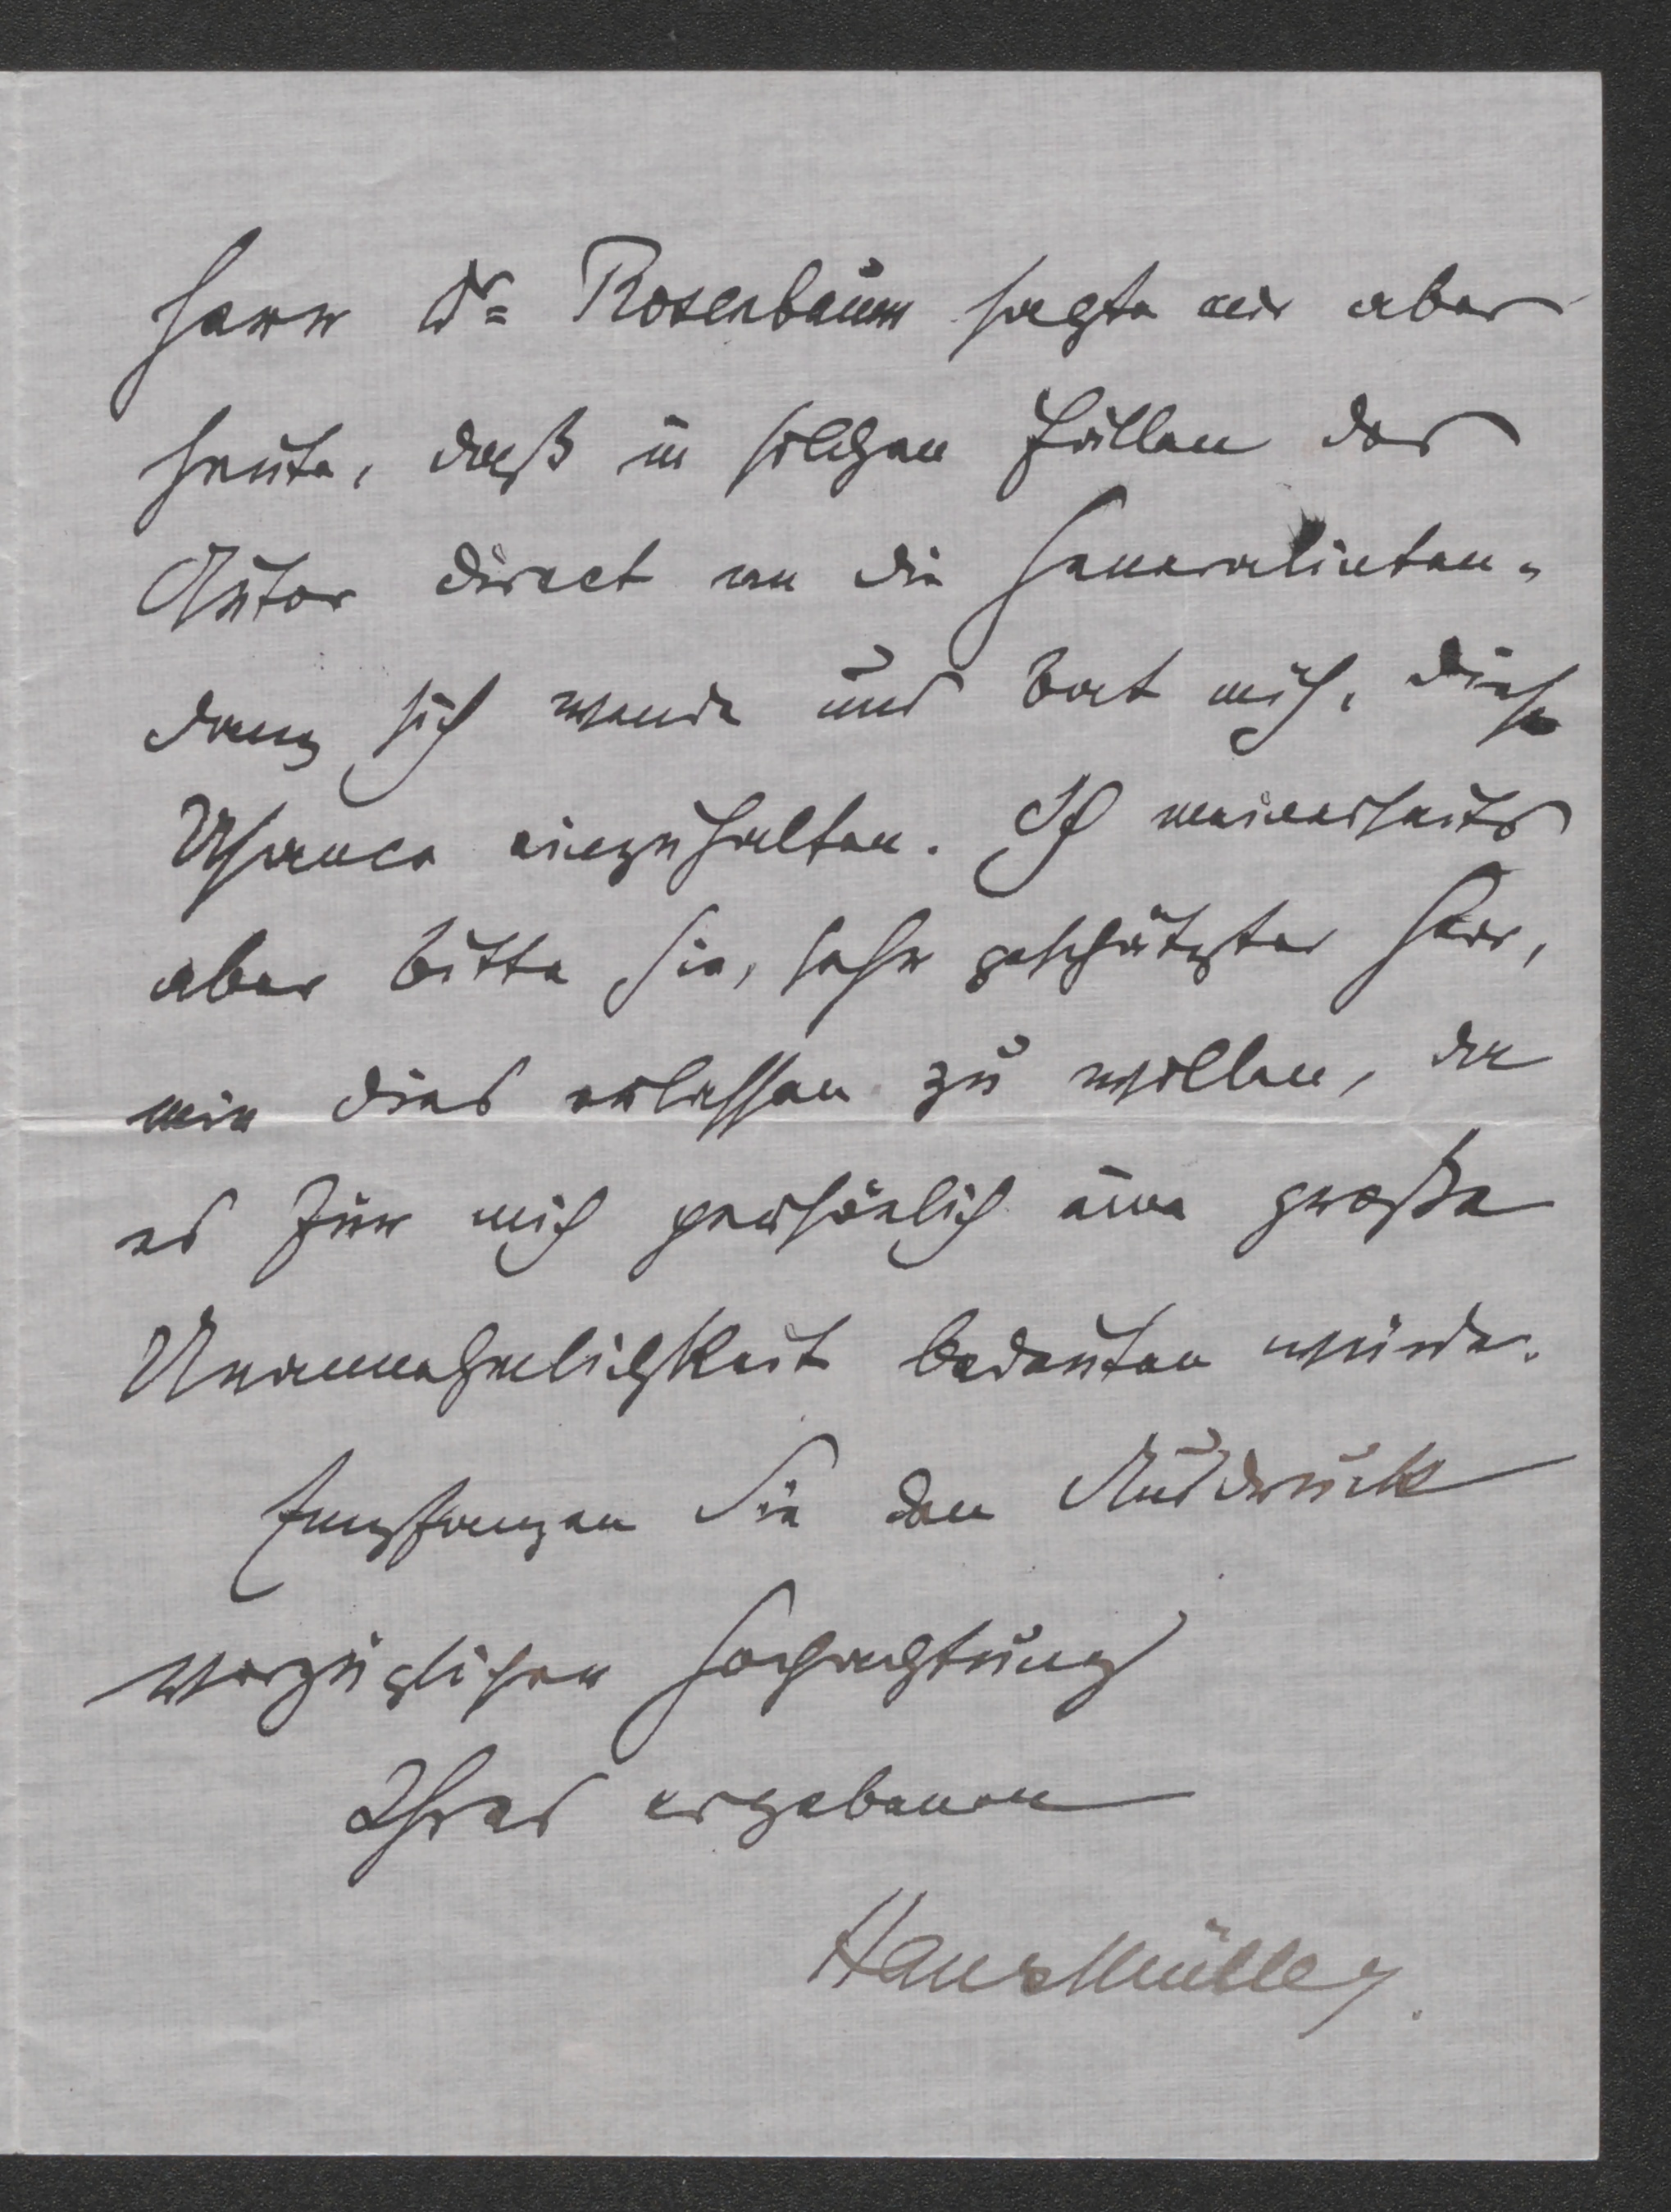 Herr Dr. Rosenbaum sagte mir aber
heute, daß in solchen Fällen der
Autor direct an die Generalinten-
danz sich wende und bat mich, diese
Usance einzuhalten. Ich meinerseits
aber bitte Sie, sehr geschätzter Herr,
mir dies erlassen zu wollen, da
es für mich persönlich eine große
Unannehmlichkeit bedeuten würde.
Empfangen Sie den Ausdruck
vorzüglicher Hochachtung
Ihres ergebenen
Hans Müller.